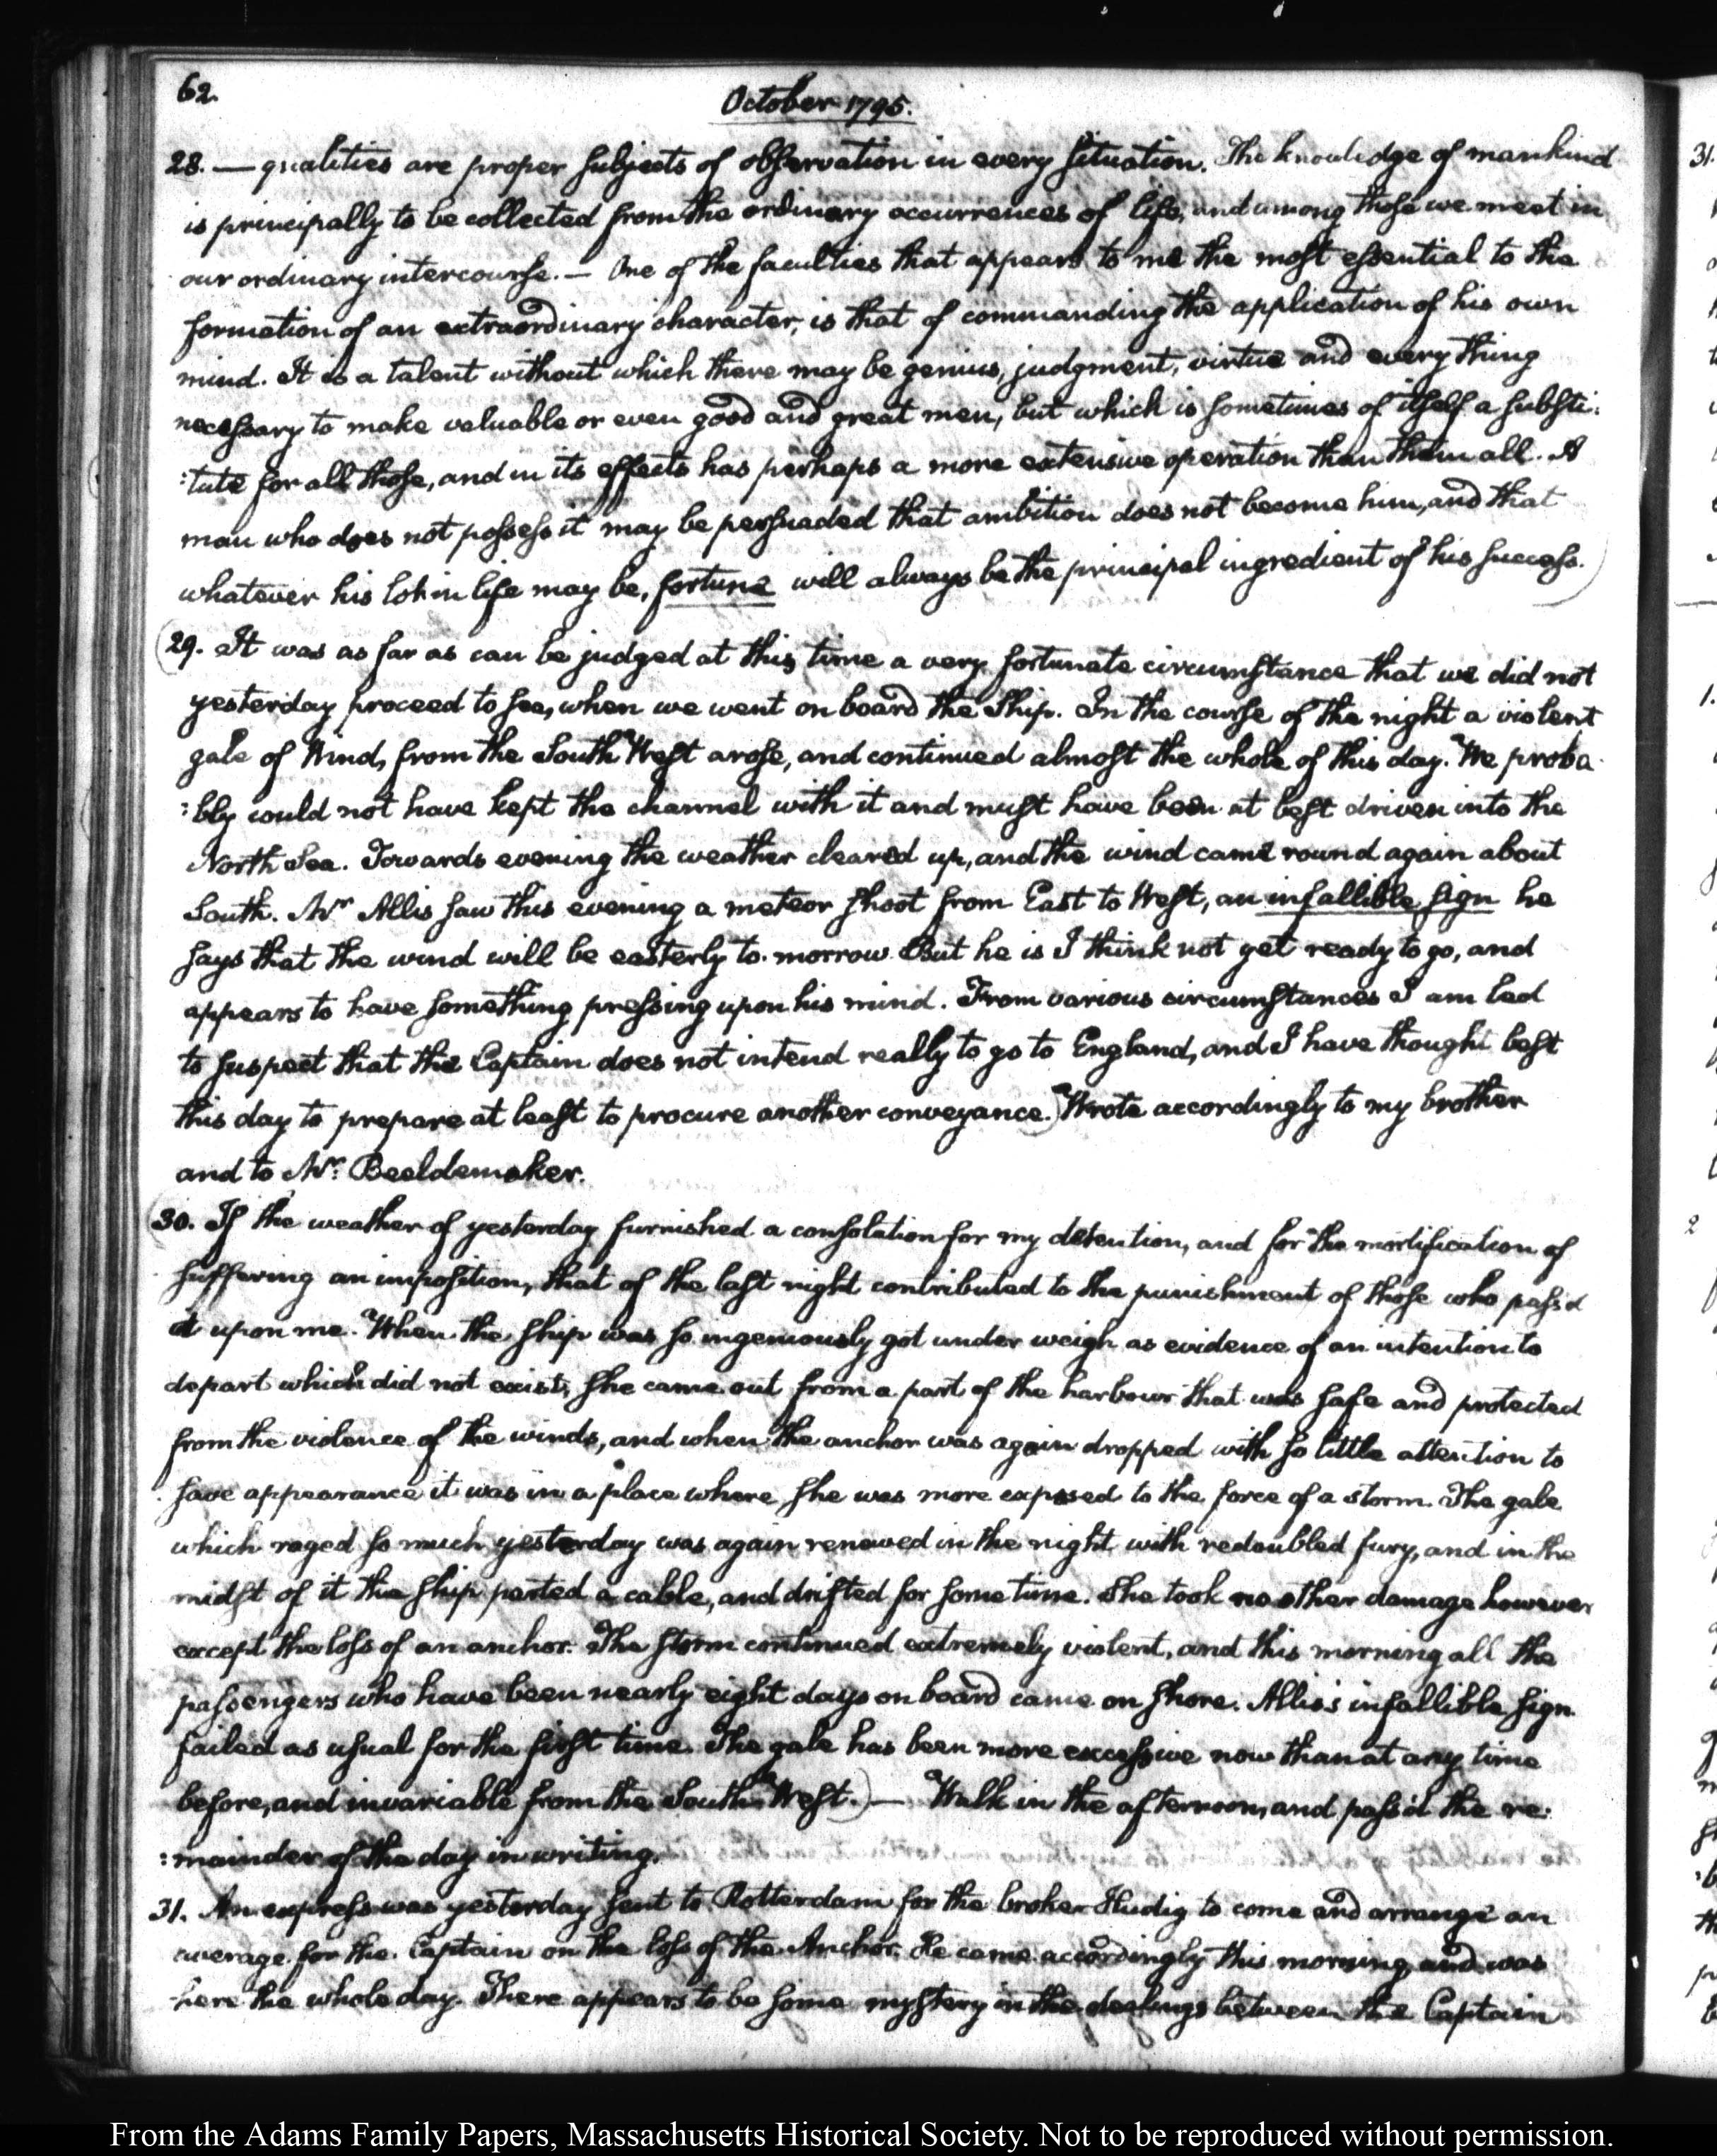 62.
October 1795.
28. — qualities are proper subjects of observation in every situation. The knowledge of mankind
is principally to be collected from the ordinary occurrences of life, and among those we meet in
our ordinary intercourse. — One of the faculties that appears to me the most essential to the
formation of an extraordinary character, is that of commanding the application of his own
mind. It is a talent without which there may be genius, judgment, virtue and every thing
necessary to make valuable or even good and great men, but which is sometimes of itself a substi:
:tute for all those, and in its effects has perhaps a more extensive operation than them all. A
man who does not possess it may be persuaded that ambition does not become him, and that
whatever his lot in life may be, fortune will always be the principal ingredient of his success.
29. It was as far as can be judged at this time a very fortunate circumstance that we did not
yesterday proceed to sea, when we went on board the Ship. In the course of the night a violent
gale of Wind, from the South West arose, and continued almost the whole of this day. We proba
:bly could not have kept the channel with it and must have been at best driven into the
North Sea. Towards evening the weather cleared up, and the wind came round again about
South. Mr Allis saw this evening a meteor shoot from East to West, an infallible sign he
says that the wind will be easterly to-morrow. But he is I think not yet ready to go, and
appears to have something pressing upon his mind. From various circumstances I am led
to suspect that the Captain does not intend really to go to England, and I have thought best
this day to prepare at least to procure another conveyance.) Wrote accordingly to my brother
and to Mr: Beeldemaker.
(30. If the weather of yesterday furnished a consolation for my detention, and for the mortification of
suffering an imposition, that of the last night contributed to the punishment of those who pass'd
it upon me. When the ship was so ingeniously got under weigh as evidence of an intention to
depart which did not exist, she came out from a part of the harbour that was safe and protected
from the violence of the winds, and when the anchor was again dropped with so little attention to
save appearance it was in a place where she was more exposed to the force of a storm. The gale
which raged so much yesterday was again renewed in the night with redoubled fury, and in the
midst of it the ship parted a cable, and drifted for some time. She took no other damage however
except the loss of an anchor. The storm continued extremely violent, and this morning all the
passengers who have been nearly eight days on board came on shore. Allis's infallible sign
failed as usual for the first time. The gale has been more excessive now than at any time
before, and invariable from the South West.) — Walk in the afternoon, and pass'd the re:
:mainder of the day in writing.
31. An express was yesterday sent to Rotterdam for the broker Hudig to come and arrange an
average for the Captain on the loss of the Anchor. He came accordingly this morning, and was
here the whole day. There appears to be some mystery in the dealings between the Captain
From the Adams Family Papers, Massachusetts Historical Society. Not to be reproduced without permission.